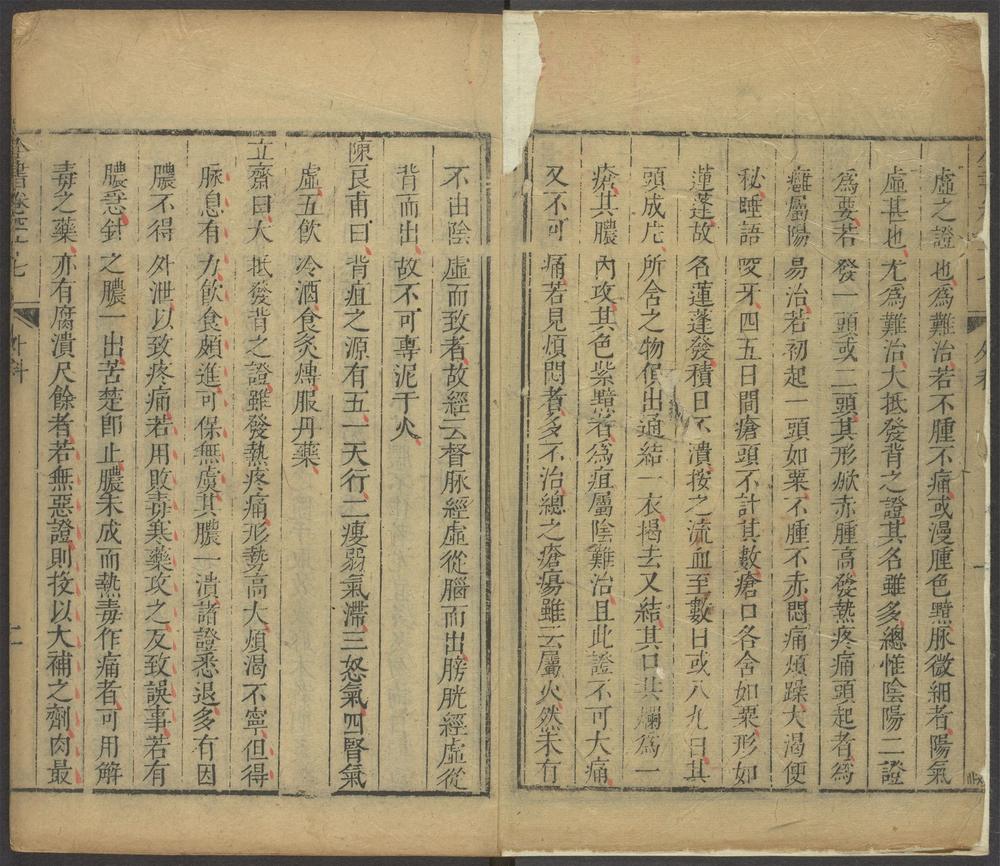 虛之證也爲難治若不腫不痛或漫腫色黯脉微細者陽氣
虛甚也尤爲難治大抵發背之證其名雖多總惟陰陽二證
爲要若發一頭或二頭其形焮赤腫高發熱疼痛頭起者爲
癰屬陽易治若初起一頭如粟不腫不赤悶痛煩躁大渴便
秘睡語咬牙四五日間瘡頭不計其數瘡口各含如粟形如
蓮蓬故名蓮蓬發積日不潰按之流血至數日或八九日其
頭成片所含之物俱出通結一衣揭去又結其口共爛爲一
瘡其膿內攻其色紫黯者爲疽屬陰難治且此證不可大痛
又不可痛若見煩悶者多不治總之瘡瘍雖云屬火然未有
不由陰虛而致者故經云督脉經虛從腦而出膀胱經虛從
背而出故不可專泥于火
陳良甫曰背疽之源有五一天行二瘦弱氣滯三怒氣四腎氣
虛五飲冷酒食炙煿服丹藥
立齋曰大抵發背之證雖發熱疼痛形勢高大煩渴不寧但得
脉息有力飲食頗進可保無虞其膿一潰諸證悉退多有因
膿不得外泄以致疼痛若用敗毒寒藥攻之反致誤事若有
膿急針之膿一出苦楚卽止膿未成而熱毒作痛者可用解
毒之藥亦有腐潰尺餘者若無惡證則投以大補之劑肉最
全書卷之 七
外科
二